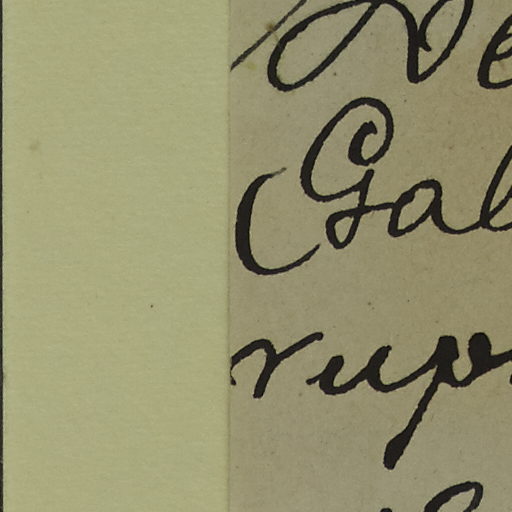 De
Gal
rup